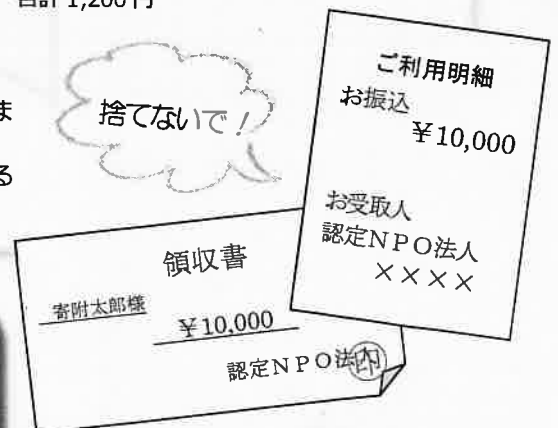 合計 1,200円
ま
る
捨てないで!
ご利用明細
お振込
¥10,000
お受取人
認定NPO法人
××××
領収書
寄附太郎様
¥10,000
認定NPO法
印